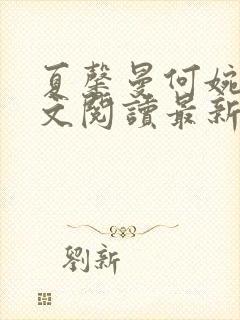 夏馨曼何婉
文閱讀最新
劉新